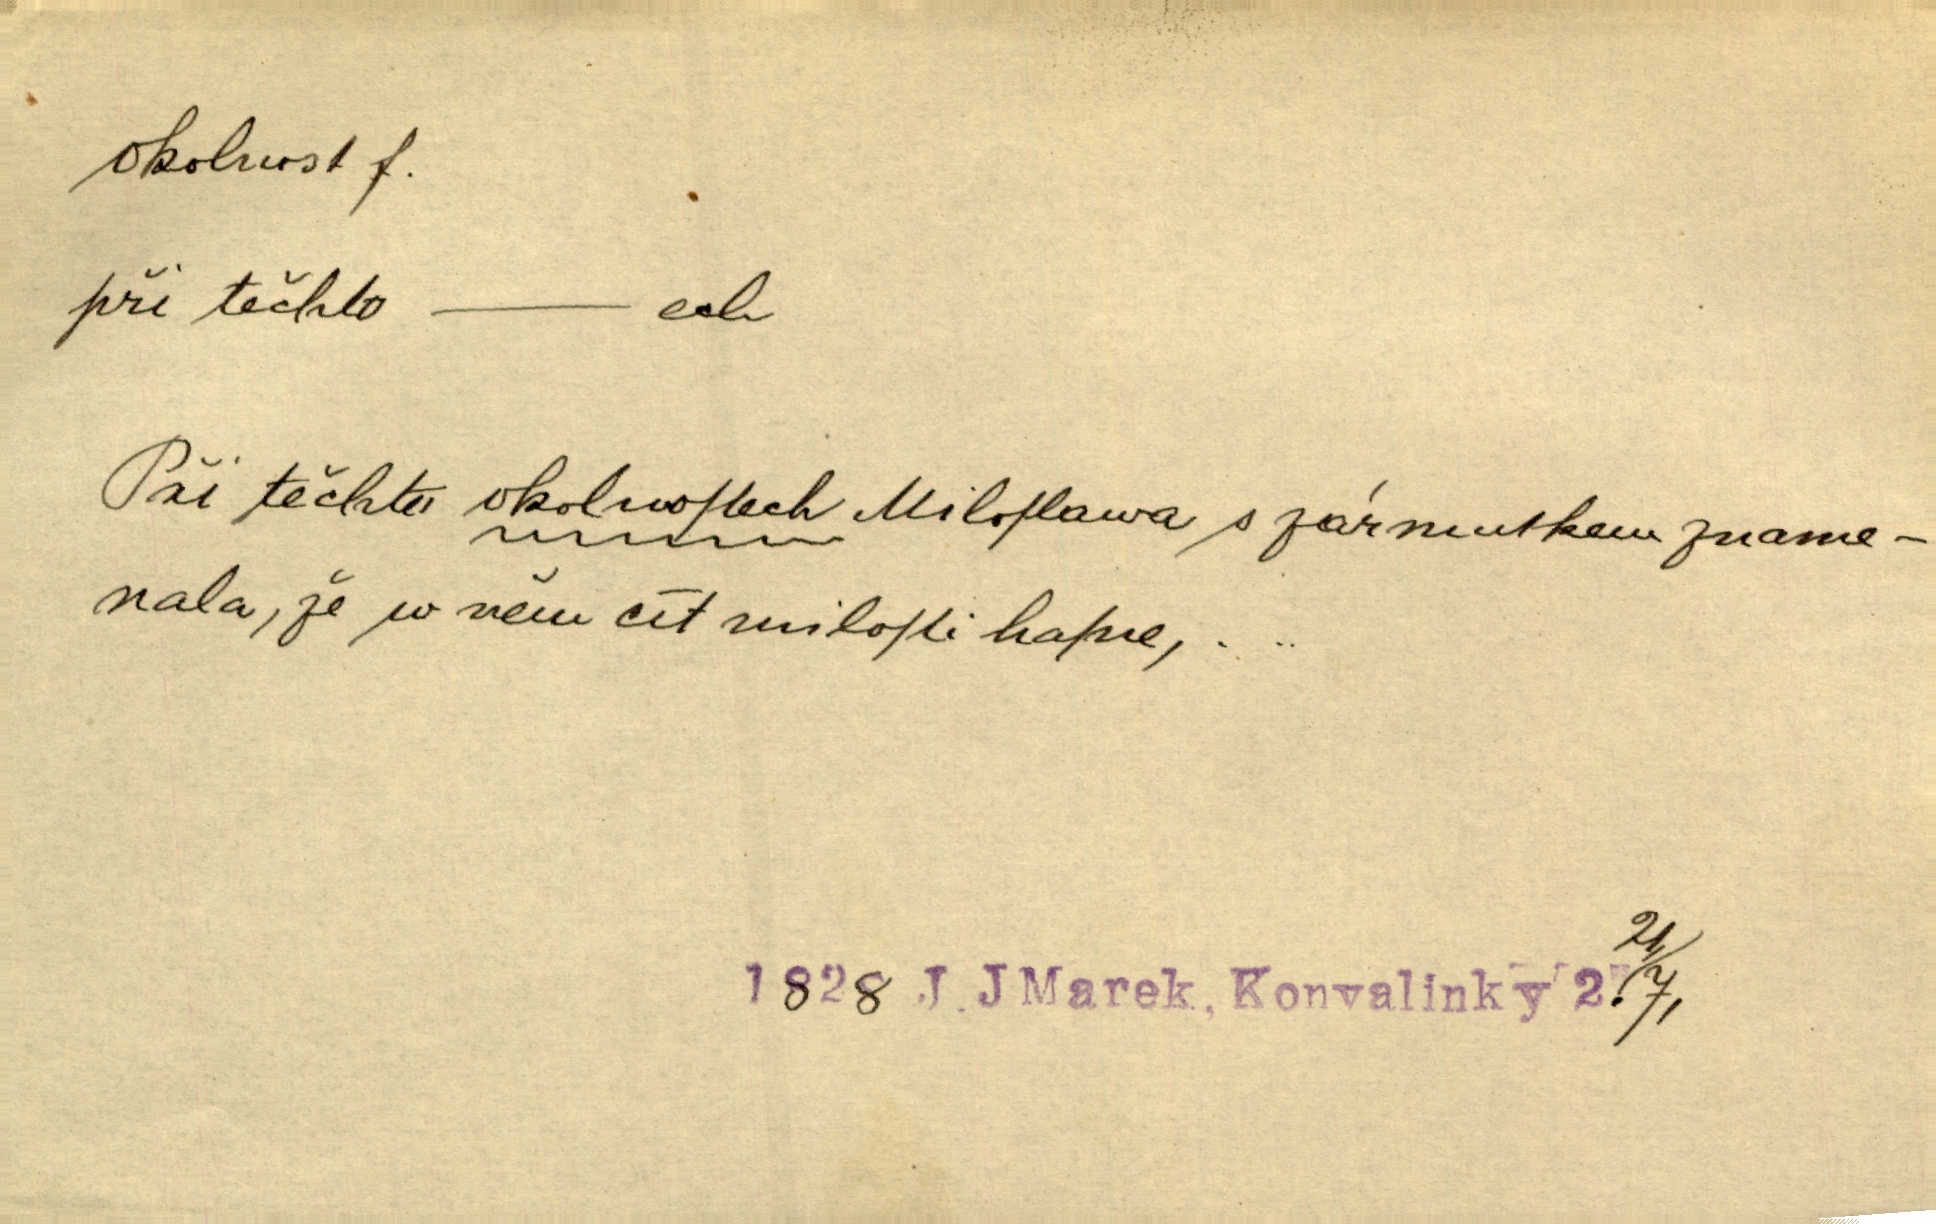 okolnost f.
při těchto — ech
Při těchto okolnoſtech Miloſlawa s zármutkem zname-
nala, že w něm cit miloſti haſne, . ..
1828 J. J Marek, Konvalinky 2. 21/7,